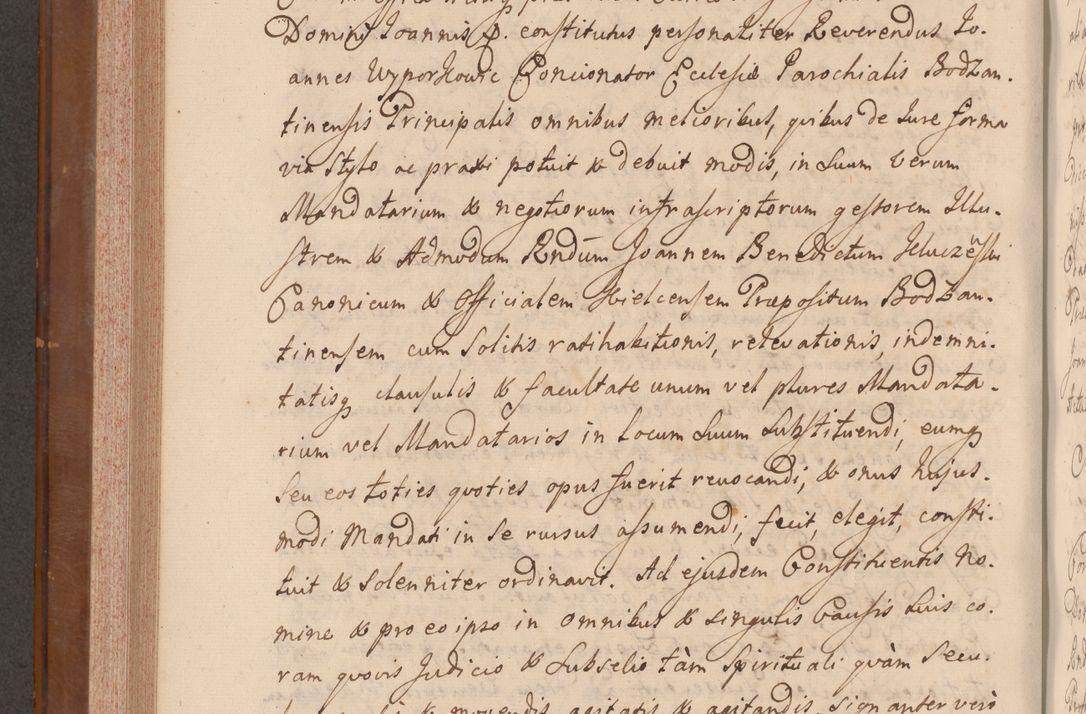 Dominj Joannis D. constitutus personaliter Reverendus Jo-
annes Wyporkowic Concionator Ecclesiæ Parochialis Bodzan-
tinensis Principalis omnibus melioribus, quibus de Jure forma
via stylo ac praxi potuit & debuit modis, in Suum verum
Mandatarium & negotiorum infrascriptorum gestorem Illu-
strem & Admodum Rndum Joannem Benedictum
Canonicum & Officialem Kielcensem Præpositum Bodzan-
tinensem cum Solitis ratihabitionis, relevationis, indemni-
tatisq clausulis & facultate unum vel plures Mandata-
rium vel Mandatarios in locum Suum Substituendi, eumq
Seu eos toties quoties opus fuerit revocandi, & onus hujus-
modi Mandati in Se rursus assumendi, fecit, elegit, consti-
tuit & Solenniter ordinavit. Ad ejusdem Constituentis No-
mine & pro eo ipso in omnibus & Singulis Causis Suis co-
ram quovis Judicio & Subselio tàm Spirituali quàm Secu-
movendis agitatis & agitandis, Signanter verò